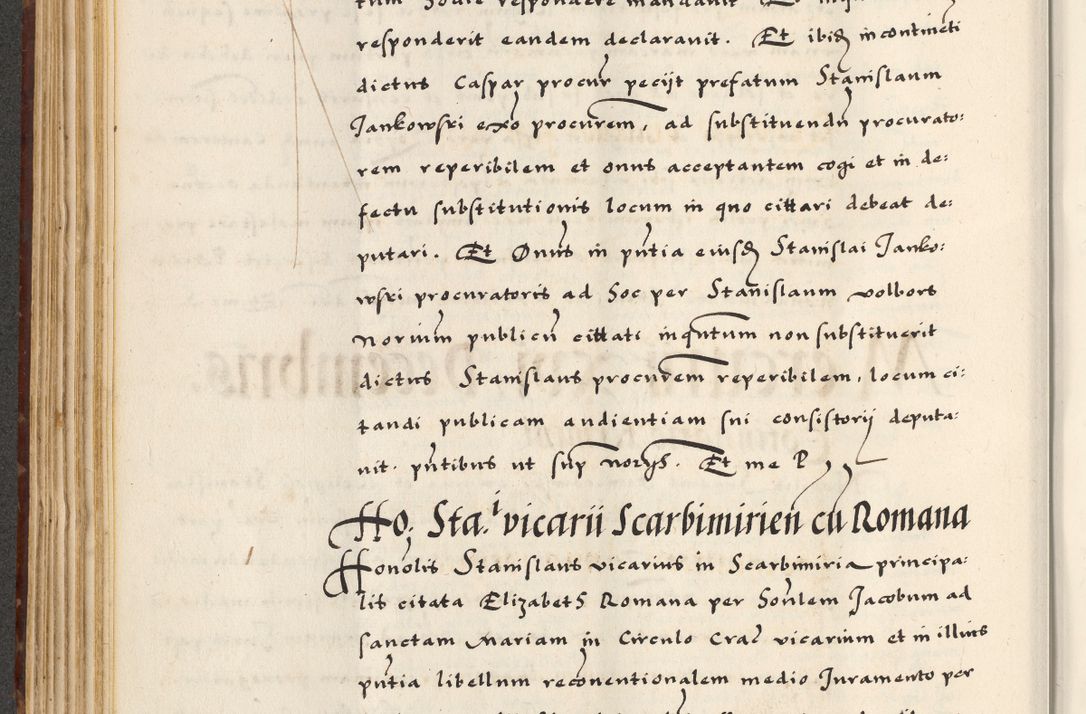 responderit eandem declarauit. Et ibid incontineti
dictus Caspar procur peciit prefatum Stanislaum
Jankowski exo procurem, ad substituendu procurato:
rem reperibilem et onus acceptantem cogi et in de:
fectu substitutionis locum in quo cittari debeat de:
putari. Et Dnus in pntia eiusd Stanislai Janko:
wski procuratoris ad hoc per Stanislaum volbors
Norium publicu cittati inquntum non substituerit
dictus Stanislaus procurem reperibilem, locum ci:
tandi publicam audientiam sui consistorij deputa:
uit. pntibus ut sup norijs. Et me P
Ho: Sta.i vicarii Scarbimirien cu Romana
Honolis Stanislaus vicarius in Scarbimiria principa:
lis citata Elizabeth Romana per honlem Jacobum ad
sanctam Mariam in Circulo Crac vicarium et in illius
pntia libellum reconventionalem medio Juramento per